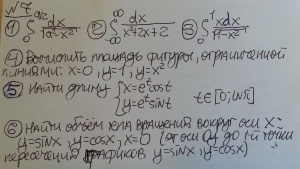 №7
① ∫₀^{a/2} dx/√(a²-x²) ② ∫₀^∞ dx/(x²+2x+2) ③ ∫₀¹ xdx/√(1-x²)
④ Вычислить площадь фигуры, ограниченной
линиями: x=0, y=1, y=x²
⑤ Найти длину { x=eᵗcost y=eᵗsint t∈[0; lnπ]
⑥ Найти объём тела вращения вокруг оси x:
y=sinx, y=cosx, x=0 (от оси Oy до 1-й точки
пересечения графиков y=sinx, y=cosx)